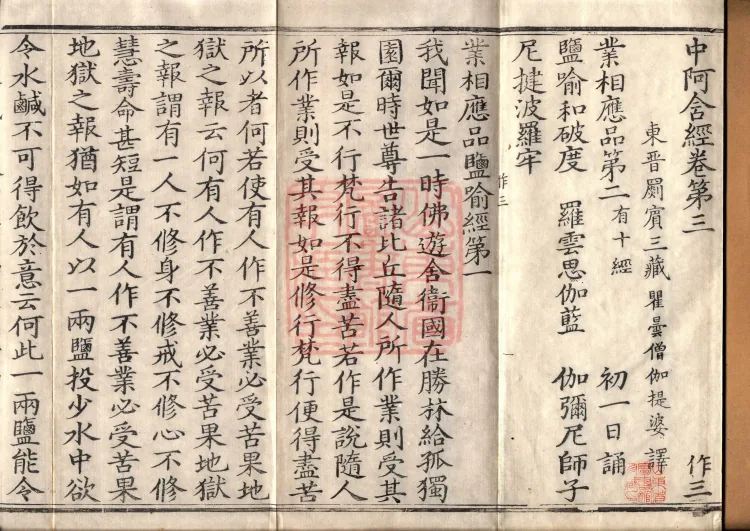 中阿含經卷第三 作三
東晉罽賓三藏瞿曇僧伽提婆譯
業相應品第二有十經 初一日誦
鹽喻和破度 羅雲思伽藍 伽彌尼師子
尼揵波羅牢
作三
業相應品鹽喻經第一
我聞如是一時佛遊舍衛國在勝林給孤獨
園爾時世尊告諸比丘隨人所作業則受其
報如是不行梵行不得盡苦若作是說隨人
所作業則受其報如是修行梵行便得盡苦
所以者何若使有人作不善業必受苦果地
獄之報云何有人作不善業必受苦果地獄
之報謂有一人不修身不修戒不修心不修
慧壽命甚短是謂有人作不善業必受苦果
地獄之報猶如有人以一兩鹽投少水中欲
令水鹹不可得飲於意云何此一兩鹽能令